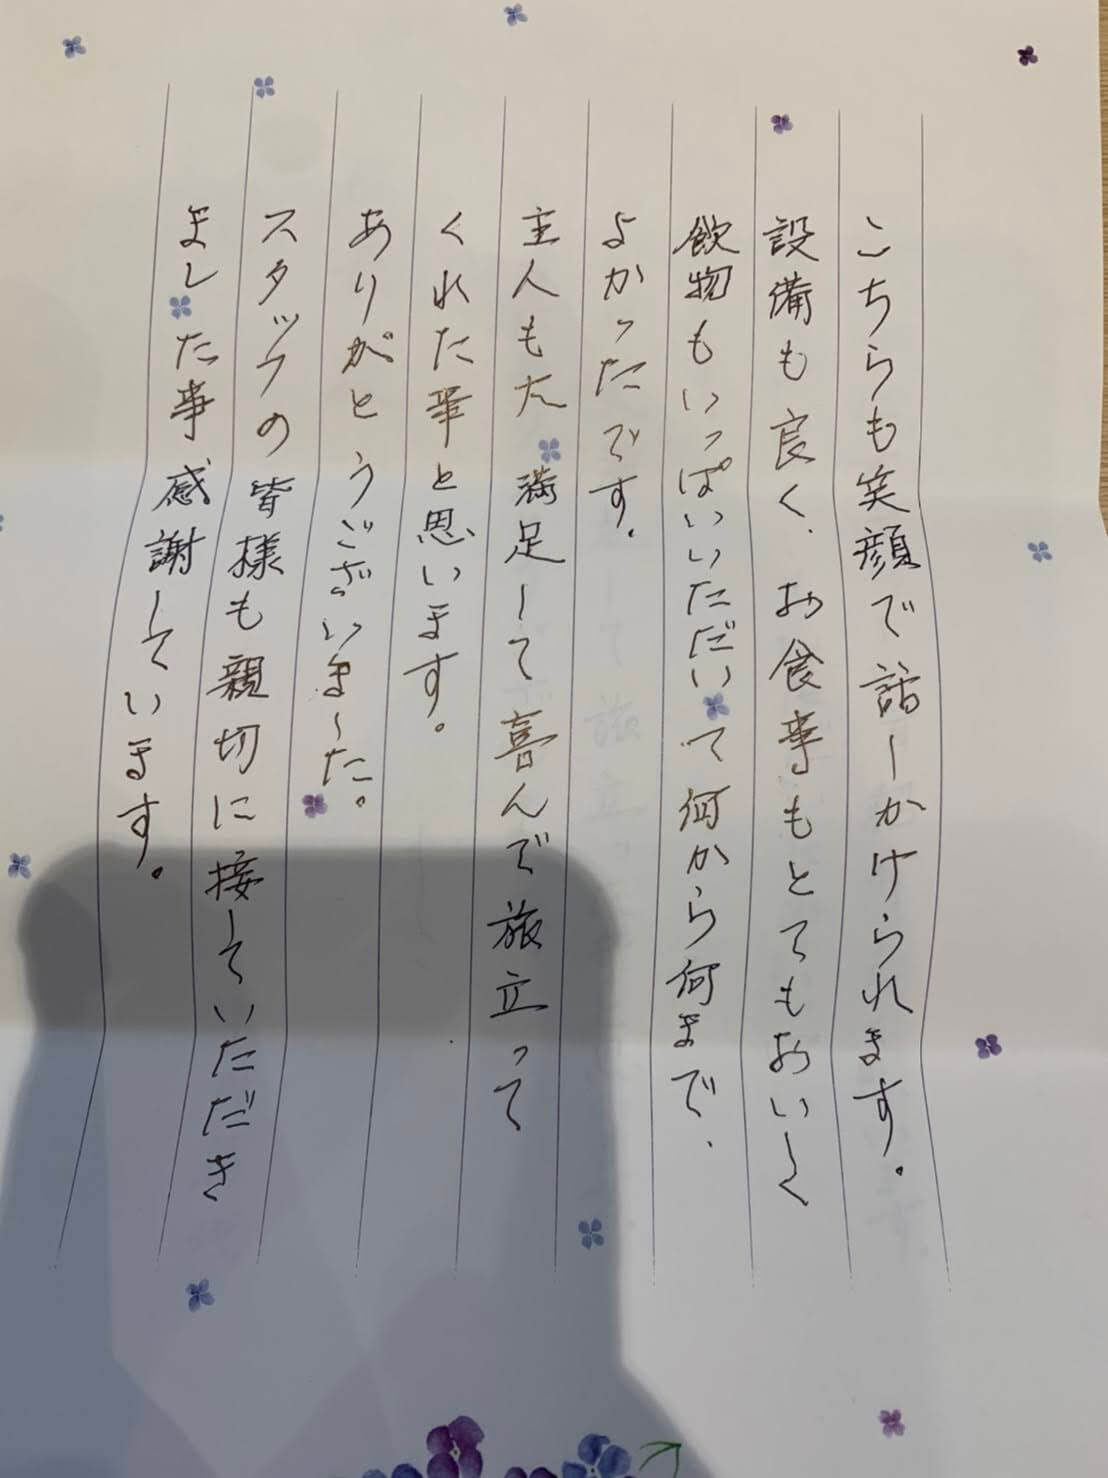 こちらも笑顔で話しかけられます。
設備も良く、お食事もとてもおいしく
飲物もいっぱいいただいて何から何まで、
よかったです。
主人もた 満足して喜んで旅立って
くれた事と思います。
ありがとうございました。
スタッフの皆様も親切に接していただき
ました事感謝しています。